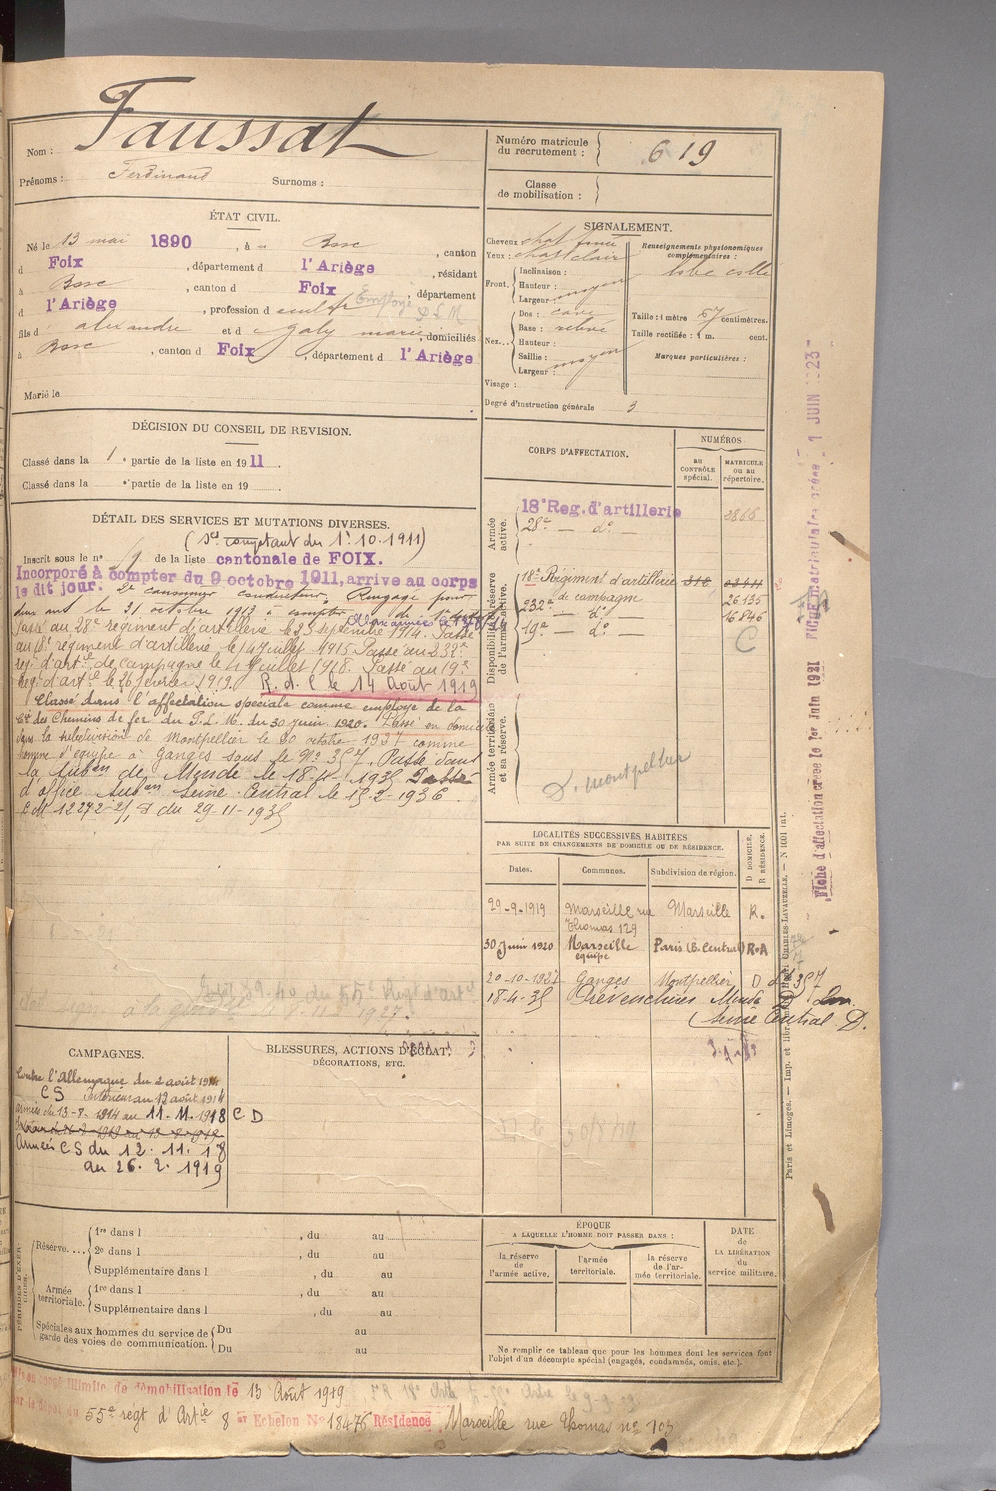 Nom : Faussat
Prénoms : Ferdinand Surnoms :
Numéro matricule du recrutement : 619
Classe de mobilisation :
ÉTAT CIVIL.
Né le 13 mai 1890, à Bosc, canton
d Foix, département d l'Ariège, résidant
à Bosc, canton d Foix, département
d l'Ariège, profession d cult Employé P.L.M
fils d alexandre et d Galy marie, domiciliés
à Bosc, canton d Foix, département d l'Ariège
Marié le
SIGNALEMENT.
Cheveux chat foncé
Yeux : chat clair
Front. Inclinaison :
Hauteur :
Largeur moyen
Nez... Dos : cave
Base : relevé
Hauteur :
Saillie : moyen
Largeur :
Visage :
Degré d'instruction générale 3
Renseignements physionomiques complémentaires :
lobe collé
Taille : 1 mètre 57 centimètres.
Taille rectifiée : 1 m. cent.
Marques particulières :
DÉCISION DU CONSEIL DE REVISION.
Classé dans la 1e partie de la liste en 1911.
Classé dans la e partie de la liste en 19
CORPS D'AFFECTATION.
NUMÉROS
AU CONTRÔLE spécial.
MATRICULE OU AU répertoire.
Armée active.
18e Reg. d'artillerie
28e — do —
Disponibilité et réserve de l'armée active.
18e Régiment d'artillerie
de campagne 26135
232e — do — 16846
19e — do — C
Armée territoriale et sa réserve.
S. Montpellier
DÉTAIL DES SERVICES ET MUTATIONS DIVERSES.
(Sce comptant du 1er 10.1911)
Inscrit sous le no 9 de la liste cantonale de FOIX.
Incorporé à compter du 9 octobre 1911, arrive au corps
le dit jour. 2e canonnier conducteur. Rengagé pour
deux ans le 21 octobre 1913 à compter du 1er
Passé au 28e régiment d'artillerie le 25 septembre 1914. Passé
au 18e régiment d'artillerie le 14 juillet 1915. Passé au 232e
reg. d'artie de campagne le 4 juillet 1918. Passé au 19e
Reg. d'artie le 26 fevrier 1919. R. d. l. le 14 Août 1919
Classé dans l'affectation spéciale comme employé de la
Cie des Chemins de fer du P.L.M. du 30 juin 1920. Passé en domicile
dans la subdivision de Montpellier le 20 octobre 1927 comme
homme d'équipe à Ganges sous le No 357. Passé dans
la Subon de Mende le 18-4-1935 Passé
d'office Subon Seine Central le 15-2-1936.
CM 12272-2/1, 8 du 29-11-1935
LOCALITÉS SUCCESSIVES HABITÉES
PAR SUITE DE CHANGEMENTS DE DOMICILE OU DE RÉSIDENCE.
Dates. Communes. Subdivision de région. D DOMICILE. R RÉSIDENCE.
29-9-1919 Marseille rue Thomas 129 Marseille R.
30 Juin 1920 Marseille équipe Paris (B. Central) R.A
20-10-1927 Ganges Montpellier D 357
18-4-35 Prevenchères Mende D
Seine Central D.
CAMPAGNES.
Contre l'Allemagne du 2 août 1914
CS Intérieur au 12 août 1914
armée du 13-8-1914 au 11.11.1918 CD
Armées CS du 12.11.18
au 26.2.1919
BLESSURES, ACTIONS D'ÉCLAT,
DÉCORATIONS, ETC.
PÉRIODES D'EXERCICES.
Réserve.... 1re dans l , du au
2e dans l , du au
Supplémentaire dans l , du au
Armée territoriale. 1re dans l , du au
Supplémentaire dans l , du au
Spéciales aux hommes du service de garde des voies de communication. Du au
Du au
ÉPOQUE
A LAQUELLE L'HOMME DOIT PASSER DANS :
la réserve de l'armée active.
l'armée territoriale.
la réserve de l'armée territoriale.
DATE de LA LIBÉRATION du service militaire.
Ne remplir ce tableau que pour les hommes dont les services font l'objet d'un décompte spécial (engagés, condamnés, omis, etc.).
congé illimité de démobilisation le 13 Août 1919
par le dépôt du 55e régt d'Artie 8 Echelon No 18476 Résidence Marseille rue Thomas no 103
Fiche d'affectation créée le 1er Juin 1921
FICHE matriculaire créée 1 JUIN 1923
Paris et Limoges. — Imp. et libr. militaires Henri CHARLES-LAVAUZELLE. — N 1001 int.